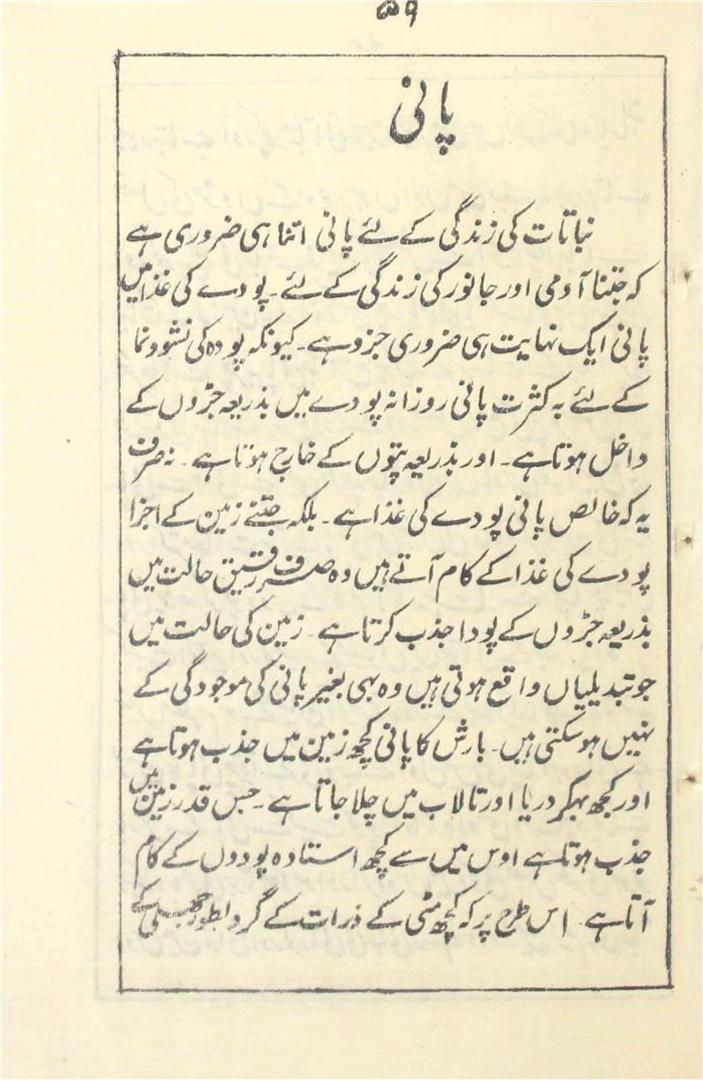 ۵۹
پانی
نباتات کی زندگی کے لئے پانی اتنا ہی ضروری ہے
کہ جتنا آدمی اور جانور کی زندگی کے لئے۔ پودے کی غذا میں
پانی ایک نہایت ہی ضروری جزو ہے۔ کیونکہ پودہ کی نشوونما
کے لئے بہ کثرت پانی روزانہ پودے میں بذریعہ جڑوں کے
داخل ہوتا ہے۔ اور بذریعہ پتوں کے خارج ہوتا ہے۔ نہ صرف
یہ کہ خالص پانی پودے کی غذا ہے۔ بلکہ جتنے زمین کے اجزا
پودے کی غذا کے کام آتے ہیں وہ صرف رقیق حالت میں
بذریعہ جڑوں کے پودا جذب کرتا ہے۔ زمین کی حالت میں
جو تبدیلیاں واقع ہوتی ہیں وہ بہی بغیر پانی کی موجودگی کے
نہیں ہوسکتی ہیں۔ بارش کا پانی کچھ زمین میں جذب ہوتا ہے
اور کچھ بہکر دریا اور تالاب میں چلا جاتا ہے۔ جس قدر زمین میں
جذب ہوتا ہے اوس میں سے کچھ استادہ پودوں کے کام
آتا ہے۔ اس طرح پر کہ کچھ مٹی کے ذرات کے گرد بطور جھلی کے